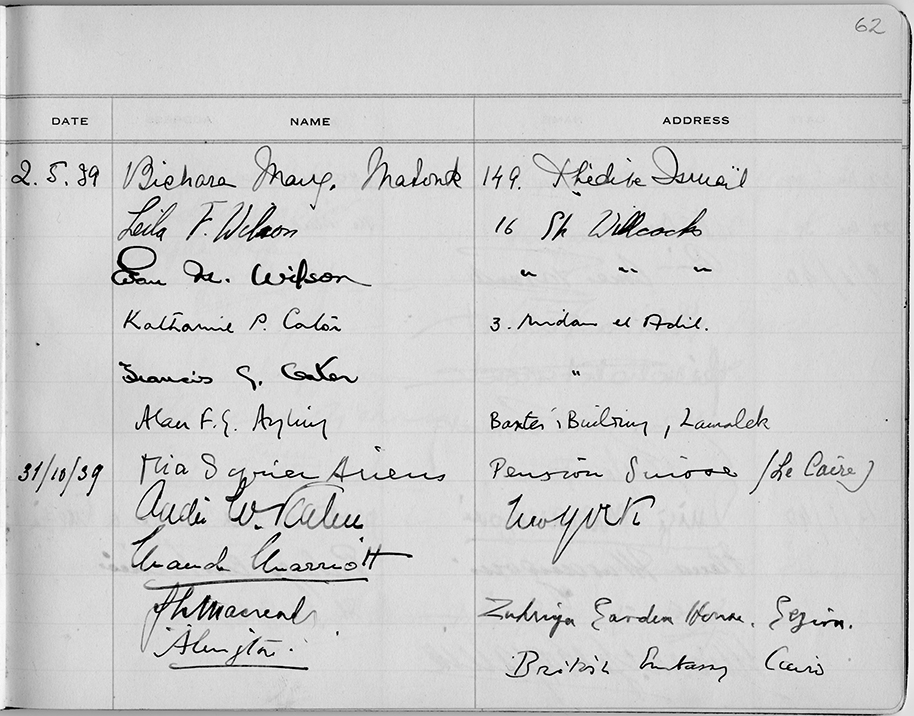 62
DATE NAME ADDRESS
2.5.39 Bichara Matouk 149. Khédive Ismaïl
Leila F. Wilson 16 Sh Willcocks
Evan M. Wilson " " "
Katharine P. Cator 3. Midan el Adil.
Francis G. Cator "
Alan F.G. Ayling Baxter's Building, Zamalek
31/10/39 Pension Suisse (Le Caire)
André W. Kahn New York
Maud Marriott
Garden House. Gezira.
Abington. British Embassy Cairo